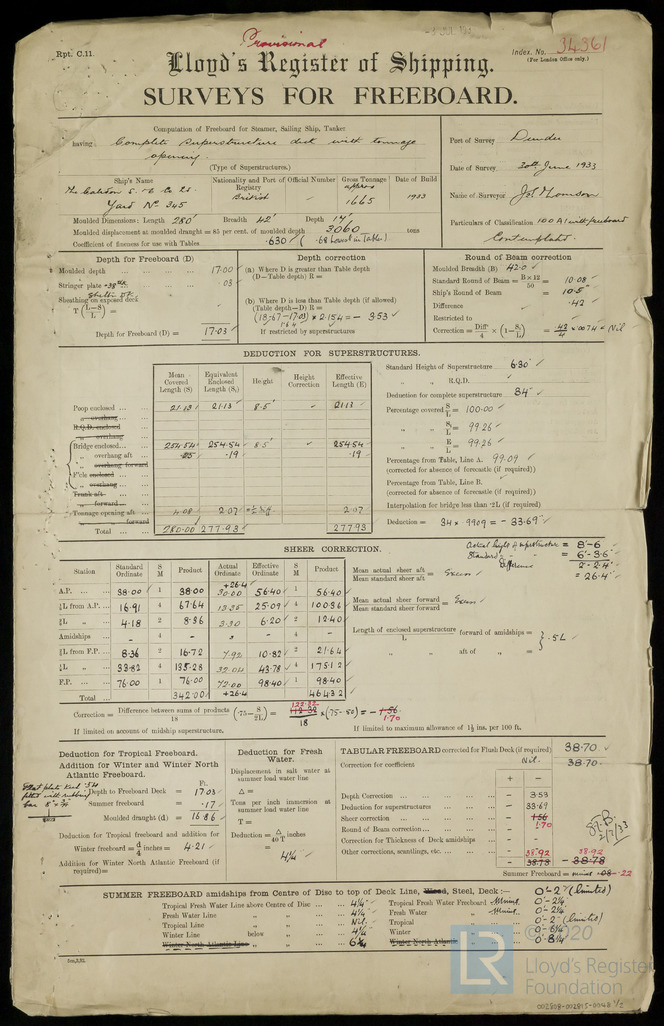 Rpt. C.11.
Provisional
Index. No. 34361
(For London Office only.)
Lloyd's Register of Shipping.
SURVEYS FOR FREEBOARD.
Computation of Freeboard for Steamer, Sailing Ship, Tanker
having Complete superstructure deck with tonnage
opening.
(Type of Superstructures.)
Port of Survey Dundee
Date of Survey 30th June 1933
Name of Surveyor Jas Thomson
Particulars of Classification 100A1 with freeboard
Contemplated.
Ship's Name
Nationality and Port of Registry
Official Number
Gross Tonnage
Date of Build
The Caledon S. & E. Co Ld.
Yard No 345
British
approx
1665
1933
Moulded Dimensions: Length 280' Breadth 42' Depth 17'
Moulded displacement at moulded draught = 85 per cent. of moulded depth 3060 tons
Coefficient of fineness for use with Tables .630 (.68 lowest in Table)
Depth for Freeboard (D)
Moulded depth ... 17.00
Stringer plate .38" .03
Sheathing on exposed deck
T (L-S/L) =
Depth for Freeboard (D) = 17.03
Depth correction
(a) Where D is greater than Table depth
(D-Table depth) R =
(b) Where D is less than Table depth (if allowed)
(Table depth-D) R =
(18.67-17.03) × 2.154 = - 3.53
1.64
If restricted by superstructures
Round of Beam correction
Moulded Breadth (B) 42.0
Standard Round of Beam = B×12/50 = 10.08
Ship's Round of Beam = 10.5"
Difference .42
Restricted to
Correction = Diff/4 × (1-S/L) = .42/4 × .0074 = Nil
DEDUCTION FOR SUPERSTRUCTURES.
Mean Covered Length (S)
Equivalent Enclosed Length (S₁)
Height
Height Correction
Effective Length (E)
Poop enclosed ... 21.13 21.13 8.5' 21.13
„ overhang ...
R.Q.D. enclosed
„ overhang
Bridge enclosed... 254.54 254.54 8.5' 254.54
„ overhang aft ... .25 .19 .19
„ overhang forward
F'cle enclosed ...
„ overhang ...
Trunk aft ...
„ forward ...
Tonnage opening aft 4.08 2.07 2.07
„ forward
Total ... 280.00 277.93 277.93
Standard Height of Superstructure 6.30
„ „ R.Q.D.
Deduction for complete superstructure 34"
Percentage covered S/L = 100.00
„ „ S₁/L = 99.26
„ „ E/L = 99.26
Percentage from Table, Line A. 99.09
(corrected for absence of forecastle (if required))
Percentage from Table, Line B.
(corrected for absence of forecastle (if required))
Interpolation for bridge less than ·2L (if required)
Deduction = 34 × .9909 = - 33.69
SHEER CORRECTION.
Actual height of superstructure = 8'-6
Standard = 6'-3.6
Difference 2'-2.4"
= 26.4"
Station
Standard Ordinate
S M
Product
Actual Ordinate
Effective Ordinate
S M
Product
+26.4
A.P. ... 38.00 1 38.00 30.00 56.40 1 56.40
⅙L from A.P. ... 16.91 4 67.64 13.35 25.09 4 100.36
⅓L „ 4.18 2 8.36 3.30 6.20 2 12.40
Amidships - 4 - - 4 -
⅓L from F.P. ... 8.36 2 16.72 7.92 10.82 2 21.64
⅙L „ 33.82 4 135.28 32.04 43.78 4 175.12
F.P. ... 76.00 1 76.00 72.00 98.40 1 98.40
Total ... 342.00 +26.4 464.32
Mean actual sheer aft / Mean standard sheer aft = Excess
Mean actual sheer forward / Mean standard sheer forward = Excess
Length of enclosed superstructure / L forward of amidships = .5L
„ „ aft of „ =
Correction = Difference between sums of products / 18 (·75 - S/2L) = 122.32 / 18 × (.75-.50) = - 1.56
1.70
If limited on account of midship superstructure.
If limited to maximum allowance of 1½ ins. per 100 ft.
Deduction for Tropical Freeboard.
Addition for Winter and Winter North
Atlantic Freeboard.
Ft.
Depth to Freeboard Deck = 17.03
Summer freeboard = .17
Moulded draught (d) = 16.86
Deduction for Tropical freeboard and addition for
Winter freeboard = d/4 inches = 4.21
Addition for Winter North Atlantic Freeboard (if
required) =
Deduction for Fresh
Water.
Displacement in salt water at
summer load water line
Δ =
Tons per inch immersion at
summer load water line
T =
Deduction = Δ/40 T inches
= 4¼"
TABULAR FREEBOARD corrected for Flush Deck (if required) 38.70
Correction for coefficient Nil. 38.70
+ -
Depth Correction ... - 3.53
Deduction for superstructures ... - 33.69
Sheer correction ... - 1.56
1.70
Round of Beam correction ... -
Correction for Thickness of Deck amidships -
Other corrections, scantlings, etc. ... -
38.92 38.92
- 38.78 - 38.78
Summer Freeboard = minus .08 .22
2/7/33
SUMMER FREEBOARD amidships from Centre of Disc to top of Deck Line, Wood, Steel, Deck :— 0'-2" (limited)
Tropical Fresh Water Line above Centre of Disc ... 4¼"
Fresh Water Line „ „ ... 4¼"
Tropical Line „ „ ... Nil.
Winter Line below „ ... 4¼"
Winter North Atlantic Line „ „ ... 6¼
Tropical Fresh Water Freeboard Minus 0'-2¼
Fresh Water „ Minus 0'-2¼
Tropical „ 0'-2 (limited)
Winter „ 0'-6¼
Winter North Atlantic „ 0'-8¼
© 2020
LR
Lloyd's Register
Foundation
002808-002815-0048 1/2